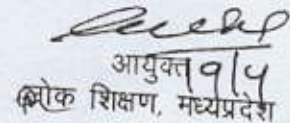 आयुक्त 19/4
लोक शिक्षण, मध्यप्रदेश